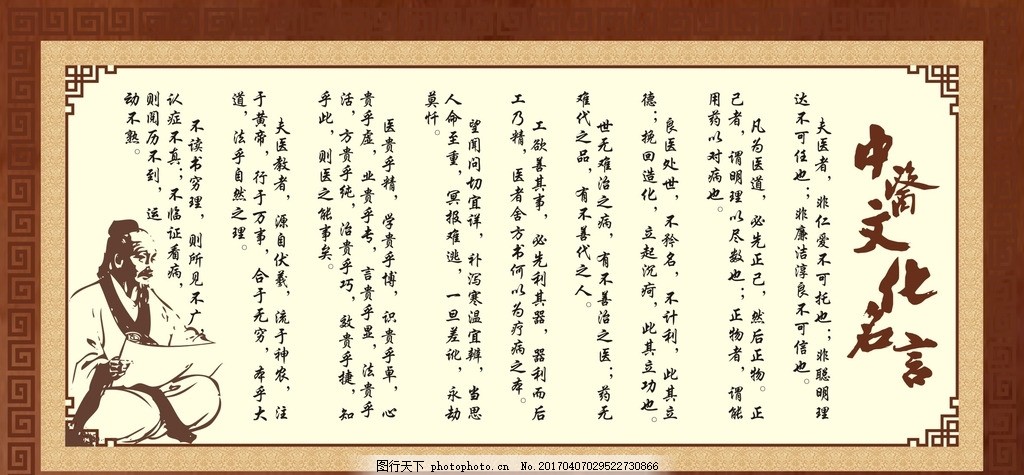 中醫文化名言
夫医者，非仁爱不可托也；非聪明理
达不可任也；非廉洁淳良不可信也。
凡为医道，必先正己，然后正物。正
己者，谓明理以尽数也；正物者，谓能
用药以对病也。
良医处世，不矜名，不计利，此其立
德；挽回造化，立起沉疴，此其立功也。
世无难治之病，有不善治之医；药无
难代之品，有不善代之人。
工欲善其事，必先利其器，器利而后
工乃精，医者舍方书何以为疗病之本。
望闻问切宜详，补泻寒温宜辩，当思
人命至重，冥报难逃，一旦差讹，永劫
莫忏。
医贵乎精，学贵乎博，识贵乎卓，心
贵乎虚，业贵乎专，言贵乎显，法贵乎
活，方贵乎纯，治贵乎巧，效贵乎捷，知
乎此，则医之能事矣。
夫医教者，源自伏羲，流于神农，注
于黄帝，行于万事，合于无穷，本乎大
道，法乎自然之理。
不读书穷理，则所见不广，
认症不真；不临证看病，
则阅历不到，运
动不熟。
图行天下 photophoto.cn No.20170407029522730866